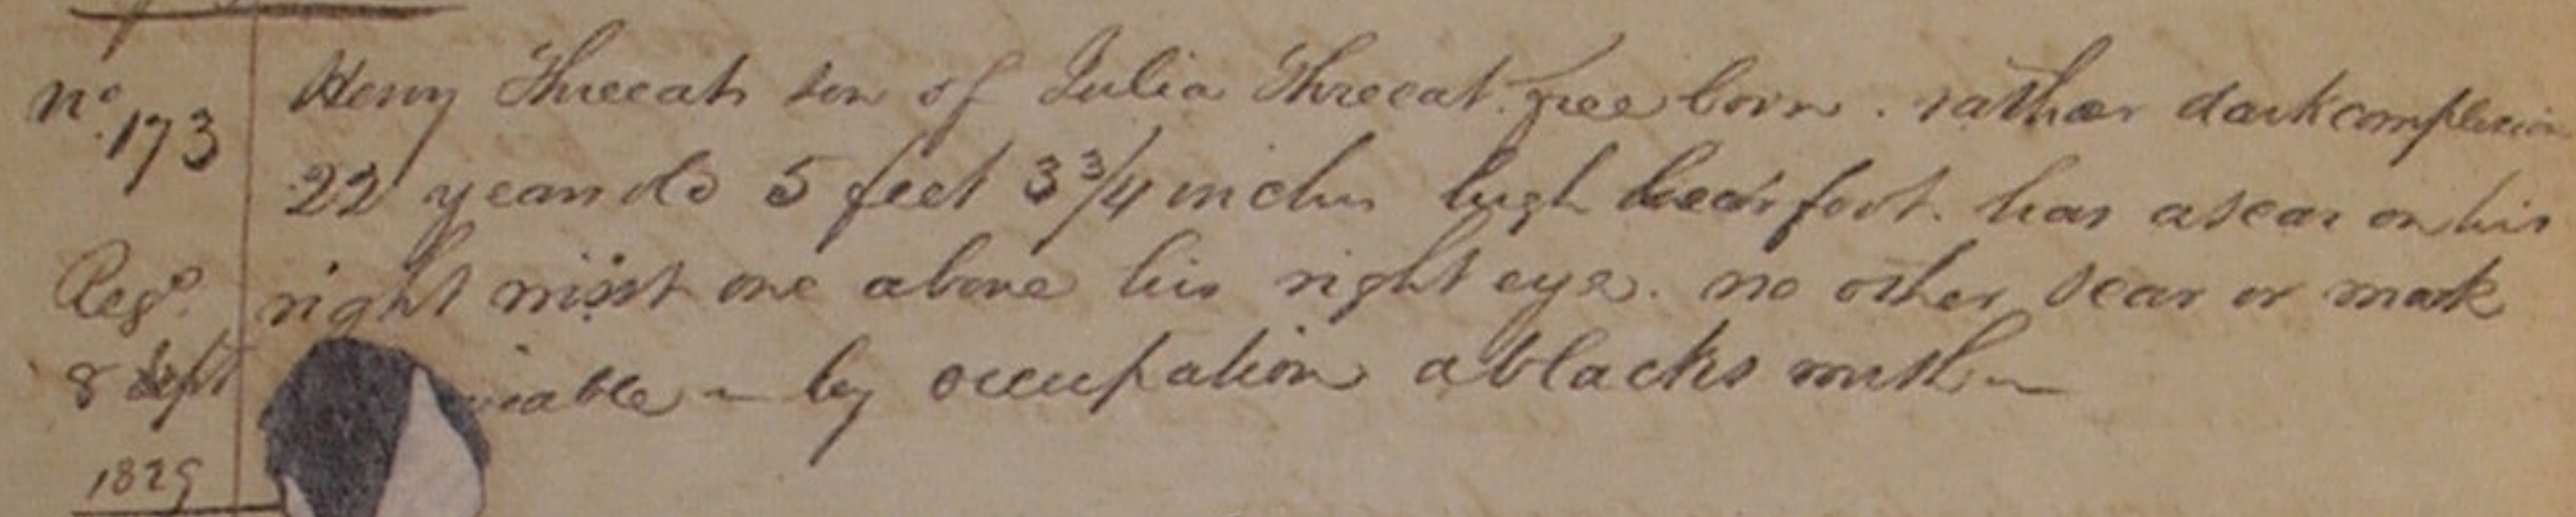 No. 173 Henry Threeat son of Julia Threeat. free born. rather dark complexion
22 years old 5 feet 3 3/4 inches high bear foot. has a scar on his
Regd. right wrist one above his right eye. no other scar or mark
8 Sept iable - by occupation a blacksmith
1829